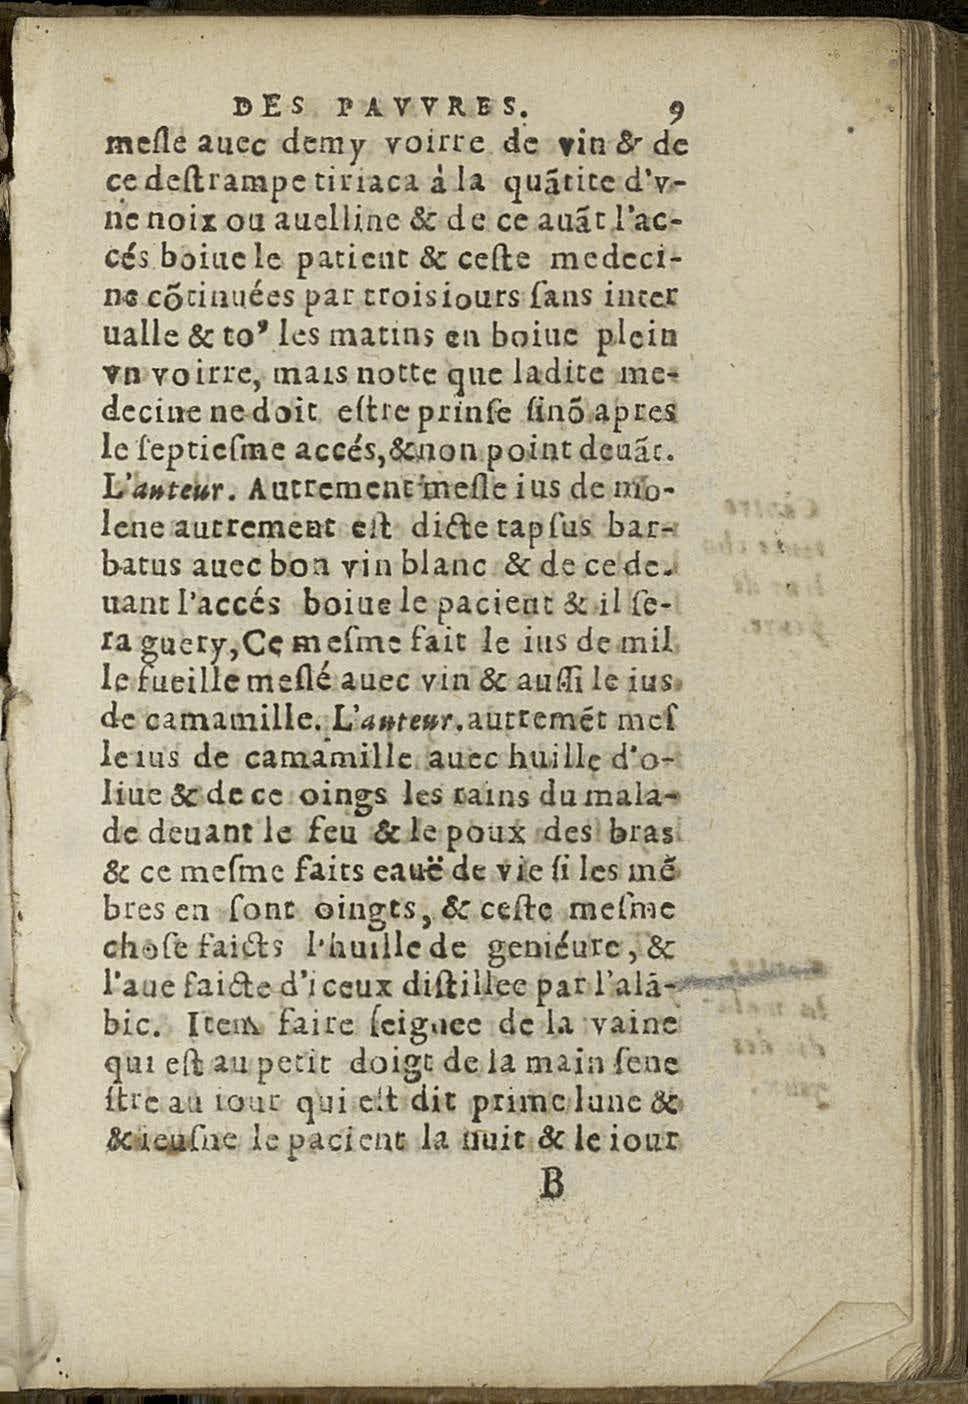 DES PAVVRES. 9
mesle auec demy voirre de vin & de
ce destrampe tiriaca à la quãtite d'v-
ne noix ou auelline & de ce auãt l'ac-
cés boiue le patient & ceste medeci-
ne cõtinuées par troisiours sans inter
ualle & to⁹ les matins en boiue plein
vn voirre, mais notte que ladite me-
decine ne doit estre prinse sinõ apres
le septiesme accés,& non point deuãt.
L'auteur. Autrement mesle ius de mo-
lene autrement est dicte tapsus bar-
batus auec bon vin blanc & de ce de-
uant l'accés boiue le pacient & il se-
ra guery, Ce mesme fait le ius de mil
le fueille meslé auec vin & aussi le ius
de camamille. L'auteur. autremẽt mes
le ius de camamille auec huille d'o-
liue & de ce oings les rains du mala-
de deuant le feu & le poux des bras
& ce mesme faits eauë de vie si les mẽ
bres en sont oingts, & ceste mesme
chose faicts l'huille de geniéure, &
l'aue faicte d'iceux distillee par l'alã-
bic. Item faire seignee de la vaine
qui est au petit doigt de la main sene
stre au iour qui est dit prime lune &
& ieusne le pacient la nuit & le iour
B